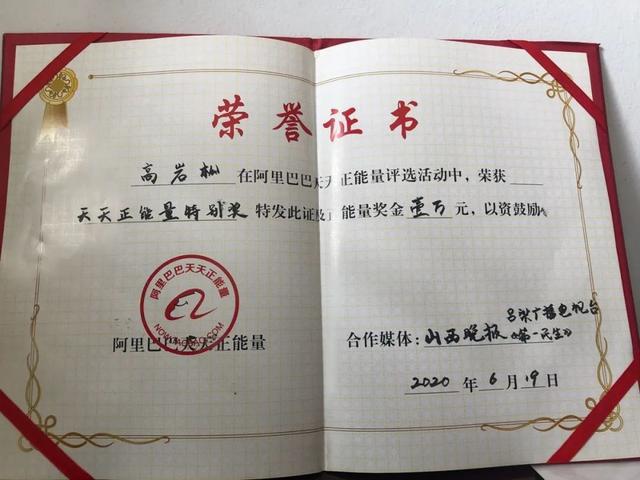 荣誉证书
高岩松 在阿里巴巴天天正能量评选活动中，荣获
天天正能量特别奖 特发此证及正能量奖金 壹万 元，以资鼓励。
阿里巴巴天天正能量
阿里巴巴天天正能量
合作媒体：山西晚报 吕梁广播电视台《第一民生》
2020 年 6 月 19 日